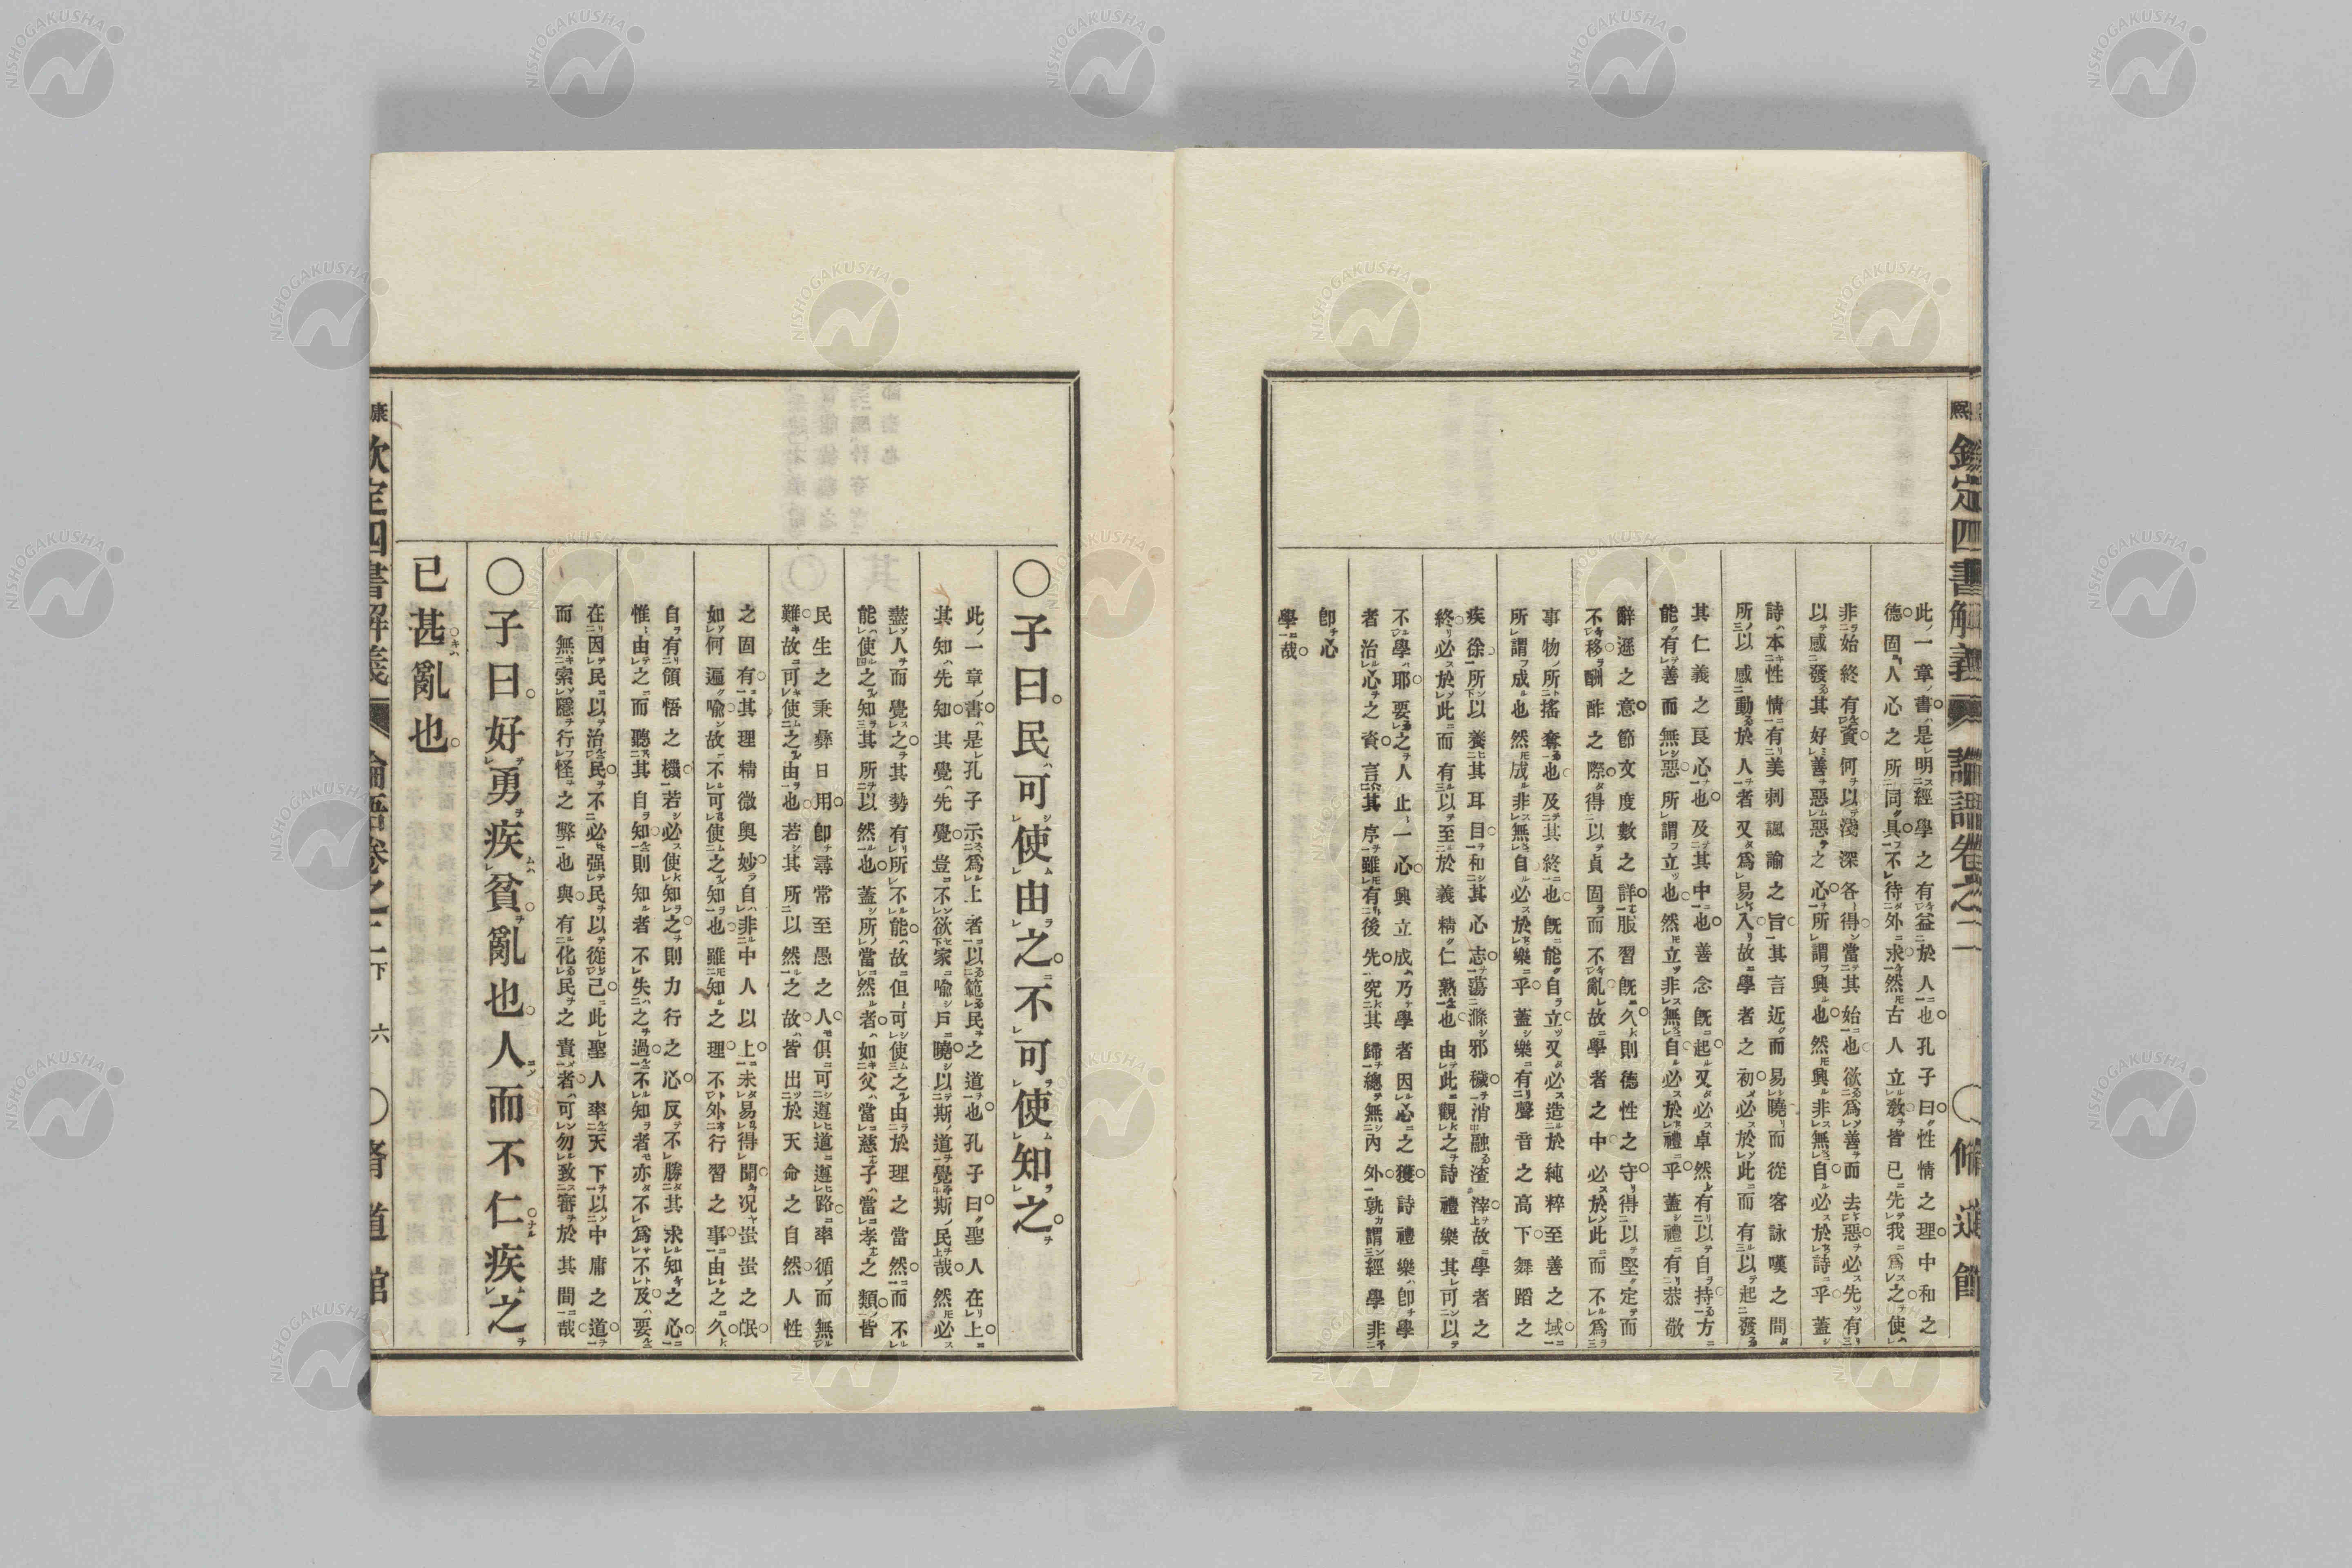 熙
欽定四書解義 論語卷之二 ○脩道館
此一章書是明經學之有益於人也孔子曰性情之理中和之
德固人心之所同具不待外求然古人立敎皆已先我爲之使
非始終有資何以淺深各得當其始也欲爲善而去惡必先有
以感發其好善惡惡之心所謂興也然興非無自必於詩乎蓋
詩本性情有美刺諷諭之旨其言近而易曉而從容詠嘆之間
所以感動於人者又爲易入故學者之初必於此而有以起發
其仁義之良心也及其中也善念旣起又必卓然有以自持方
能有善而無惡所謂立也然立非無自必於禮乎蓋禮有恭敬
辭遜之意節文度數之詳服習旣久則德性之守得以堅定而
不移酬酢之際得以貞固而不亂故學者之中必於此而不爲
事物所搖奪也及其終也旣能自立又必造於純粹至善之域
所謂成也然成非無自必於樂乎蓋樂有聲音之高下舞蹈之
疾徐所以養其耳目和其心志蕩滌邪穢消融渣滓故學者之
終必於此而有以至於義精仁熟也由此觀之詩禮樂其可以
不學耶要之人止一心興立成乃學者因心之獲詩禮樂卽學
者治心之資言其序雖有後先究其歸總無內外孰謂經學非
卽心
學哉
○子曰民可使由之不可使知之
此一章書是孔子示爲上者以範民之道也孔子曰聖人在上
其知先知其覺先覺豈不欲家喩戶曉以斯道覺斯民哉然必
盡人而覺之其勢有所不能故但可使之由於理之當然而不
能使之知其所以然也蓋所當然者如父當慈子當孝之類皆
民生之秉彝日用卽尋常至愚之人俱可遵道遵路率循而無
難故可使之由也若其所以然之故皆出於天命之自然人性
之固有其理精微奧妙自非中人以上未易得聞况蚩蚩之氓
如何遍喩故不可使之知也雖知之理不外行習之事由之久
自有領悟之機若必使知之則力行之心反不勝其求知之心
惟由之而聽其自知則知者不失之過不知者亦不爲不及要
在因民以治民不必强民以從己此聖人率天下以中庸之道
而無索隱行怪之弊也與有化民之責者可勿致審於其間哉
○子曰好勇疾貧亂也人而不仁疾之
已甚亂也
康
欽定四書解義 論語卷之二下 六 ○脩道館